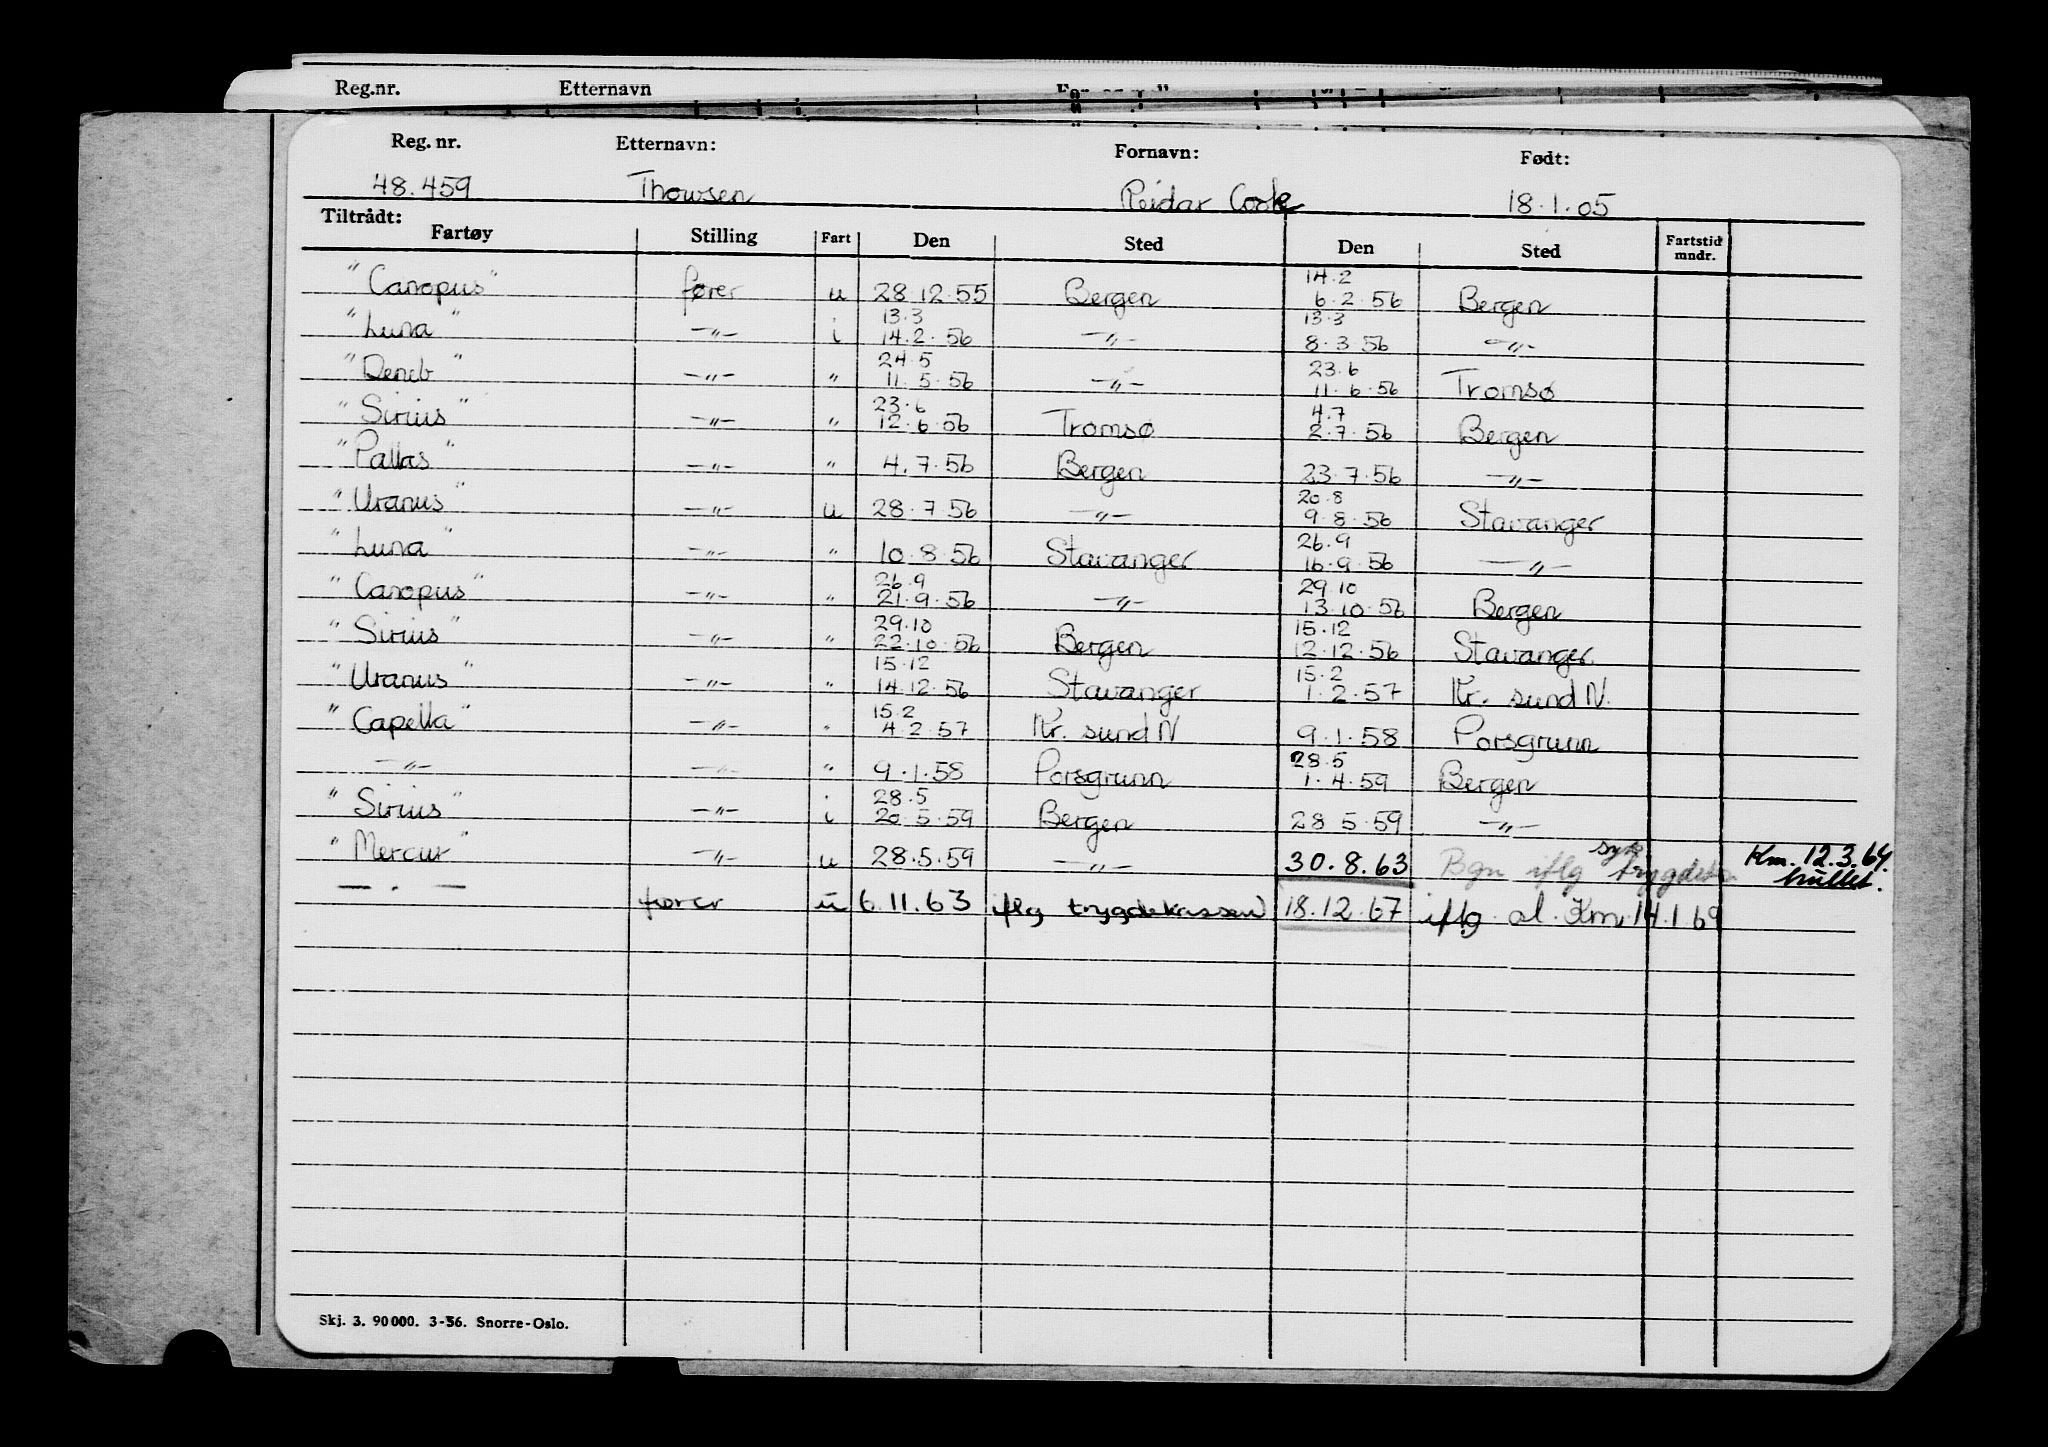 Reg.nr. Etternavn
Reg. nr. Etternavn: Fornavn: Født:
48.459 Thowsen Reidar Cook 18.1.05
Tiltrådt:
Fartøy Stilling Fart Den Sted Den Sted Fartstid mndr.
14.2
"Canopus" fører u 28.12.55 Bergen 6.2.56 Bergen
13.3 13.3
"Luna" —"— i 14.2.56 —"— 8.3.56 —"—
24.5 23.6
"Deneb" —"— " 11.5.56 —"— 11.6.56 Tromsø
23.6 4.7
"Sirius" —"— " 12.6.56 Tromsø 2.7.56 Bergen
"Pallas" —"— " 4.7.56 Bergen 23.7.56 —"—
20.8
"Uranus" —"— u 28.7.56 —"— 9.8.56 Stavanger
26.9
"Luna" —"— " 10.8.56 Stavanger 16.9.56 —"—
26.9 29.10
"Canopus" —"— " 21.9.56 —"— 13.10.56 Bergen
29.10 15.12
"Sirius" —"— " 22.10.56 Bergen 12.12.56 Stavanger
15.12 15.2
"Uranus" —"— " 14.12.56 Stavanger 1.2.57 Kr. sund N.
15.2
"Capella" —"— " 4.2.57 Kr. sund N 9.1.58 Porsgrunn
28.5
—"— —"— " 9.1.58 Porsgrunn 1.4.59 Bergen
28.5
"Sirius" —"— i 20.5.59 Bergen 28.5.59 —"—
"Mercur" —"— u 28.5.59 —"— 30.8.63 Bgn iflg syke trygdek. Km. 12.3.64. hullet.
— . — fører u 6.11.63 iflg trygdekassen 18.12.67 iflg al. Km. 14.1.69
Skj. 3. 90 000. 3-56. Snorre-Oslo.